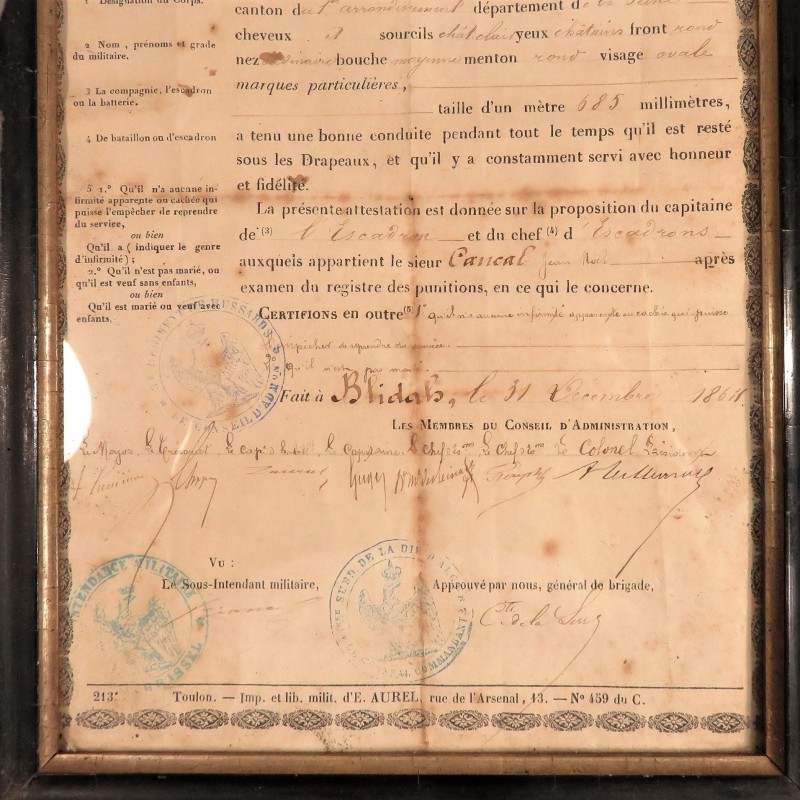 1 Désignation du Corps.
2 Nom, prénoms et grade
du militaire.
3 La compagnie, l'escadron
ou la batterie.
4 De bataillon ou d'escadron
5 1.° Qu'il n'a aucune in-
firmité apparente ou cachée qui
puisse l'empêcher de reprendre
du service,
ou bien
Qu'il a (indiquer le genre
d'infirmité);
2.° Qu'il n'est pas marié, ou
qu'il est veuf sans enfants,
ou bien
Qu'il est marié ou veuf avec
enfants.
canton du 1er arrondissement département de la Seine
cheveux et sourcils chât clair yeux châtains front rond
nez ordinaire bouche moyenne menton rond visage ovale
marques particulières,
taille d'un mètre 685 millimètres,
a tenu une bonne conduite pendant tout le temps qu'il est resté
sous les Drapeaux, et qu'il y a constamment servi avec honneur
et fidélité.
La présente attestation est donnée sur la proposition du capitaine
de (3) l'Escadron et du chef (4) d'Escadrons
auxquels appartient le sieur Cancal Jean après
examen du registre des punitions, en ce qui le concerne.
CERTIFIONS en outre (5) 1° qu'il n'a aucune infirmité apparente ou cachée qui puisse
l'empêcher de reprendre du service.
qu'il n'est pas marié.
Fait à Blidah, le 31 Décembre 1864.
LES MEMBRES DU CONSEIL D'ADMINISTRATION,
Le Major, Le Trésorier, Le Cap. d'habill. Le Capitaine, Le Chef d'Eons, Le Chef d'Eons Le Colonel Président
VU :
Le Sous-Intendant militaire,
Approuvé par nous, général de brigade,
INTENDANCE MILITAIRE
SUBD DE LA DIV D'ALGER
GÉNÉRAL COMMANDANT
HUSSARDS
CONSEIL D'ADMON
213.
Toulon. — Imp. et lib. milit. d'E. AUREL, rue de l'Arsenal, 13. — N° 459 du C.